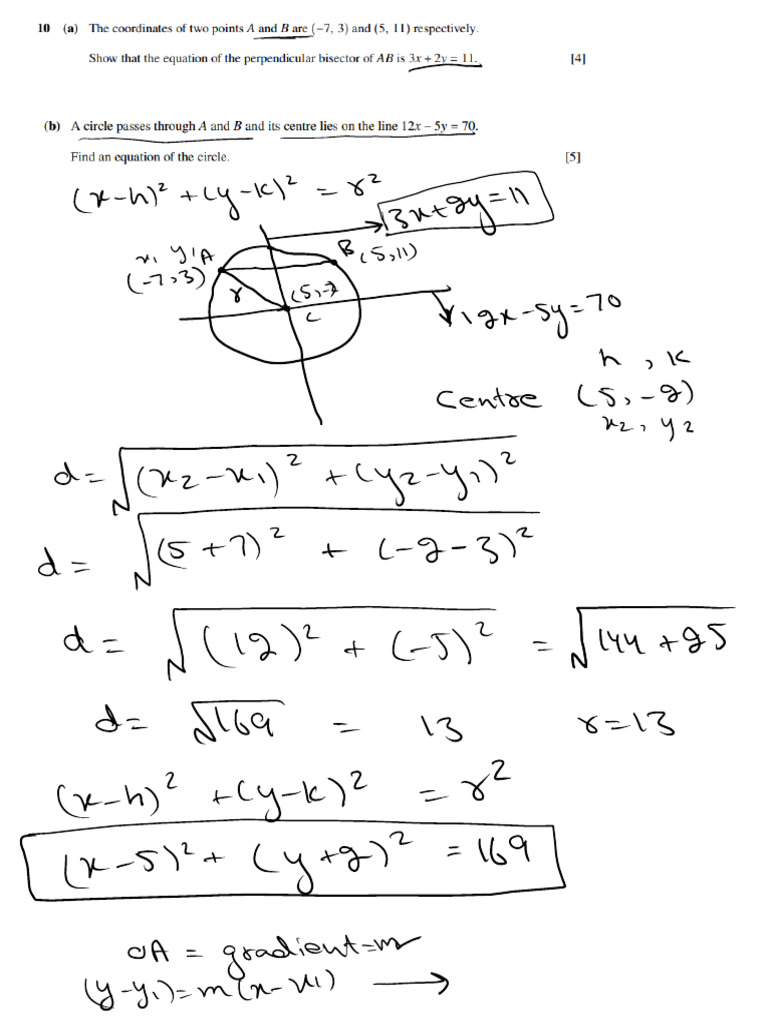 10 (a) The coordinates of two points A and B are (−7, 3) and (5, 11) respectively.
Show that the equation of the perpendicular bisector of AB is 3x + 2y = 11. [4]
(b) A circle passes through A and B and its centre lies on the line 12x − 5y = 70.
Find an equation of the circle. [5]
(x−h)² + (y−k)² = r²
3x+2y=11
x₁ y₁ A
(−7,3)
B (5,11)
r
(5,−2)
C
12x−5y=70
h , k
Centre (5,−2)
x₂, y₂
d = √((x₂−x₁)² + (y₂−y₁)²)
d = √((5+7)² + (−2−3)²)
d = √((12)² + (−5)²) = √(144+25)
d = √169 = 13 r=13
(x−h)² + (y−k)² = r²
(x−5)² + (y+2)² = 169
OA = gradient=m
(y−y₁)=m(x−x₁) →